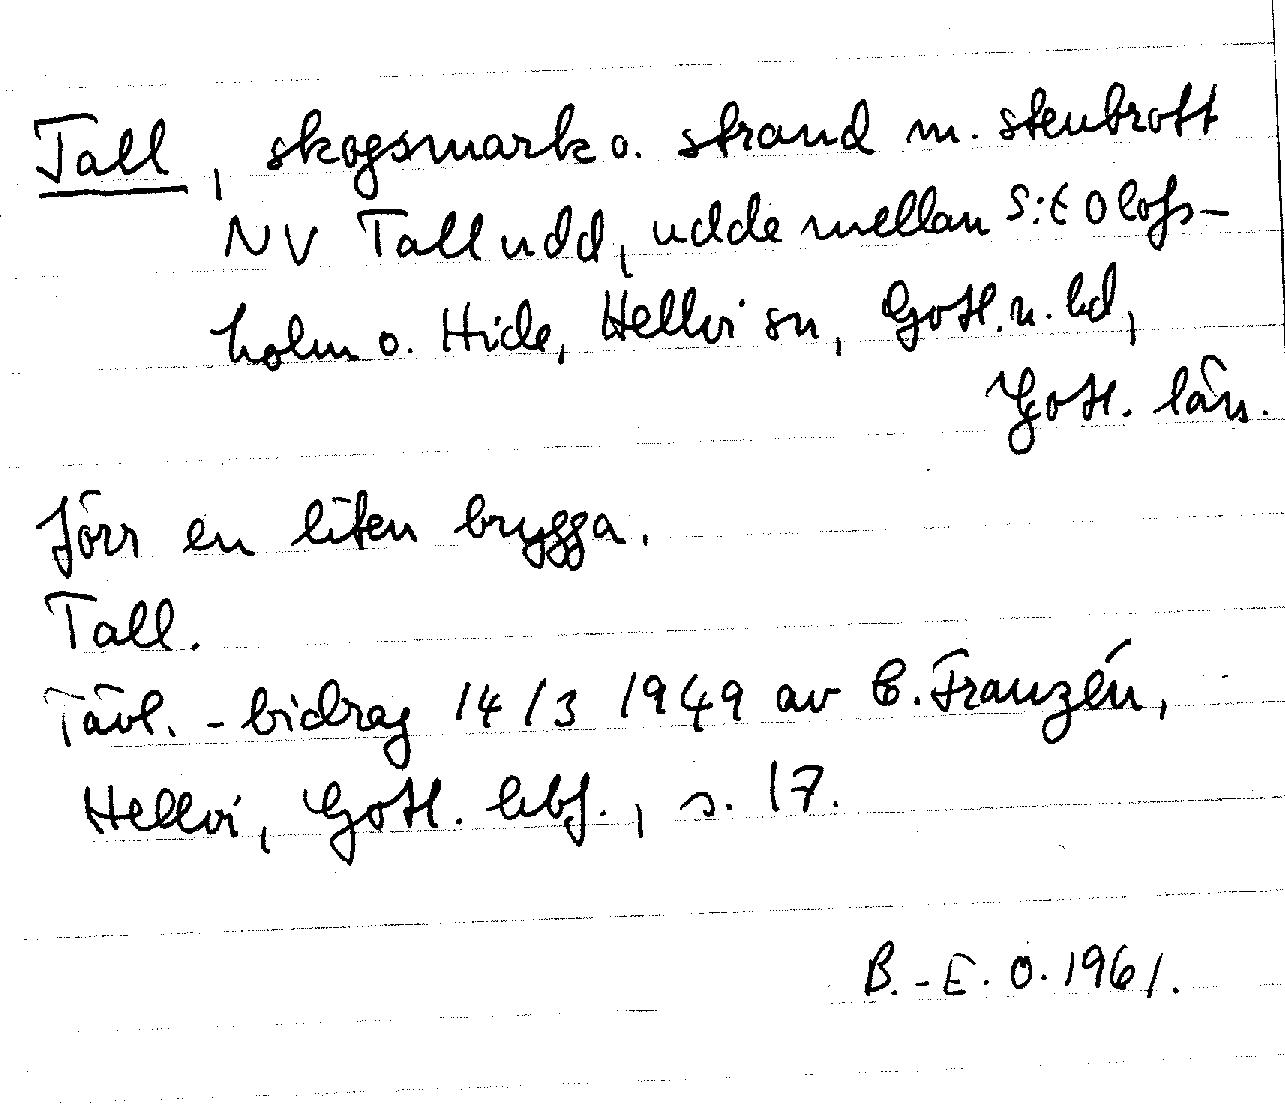 Tall, skogsmark o. strand m. stenbrott
NV Talludd, udde mellan S:t Olofs-
holm o. Hide, Hellvi sn, Gotl. n. hd,
Gotl. län.
förr en liten brygga.
Tall.
Tävl. - bidrag 14/3 1949 av C. Franzén,
Hellvi, Gotl. hbf., s. 17.
B.-E. O. 1961.